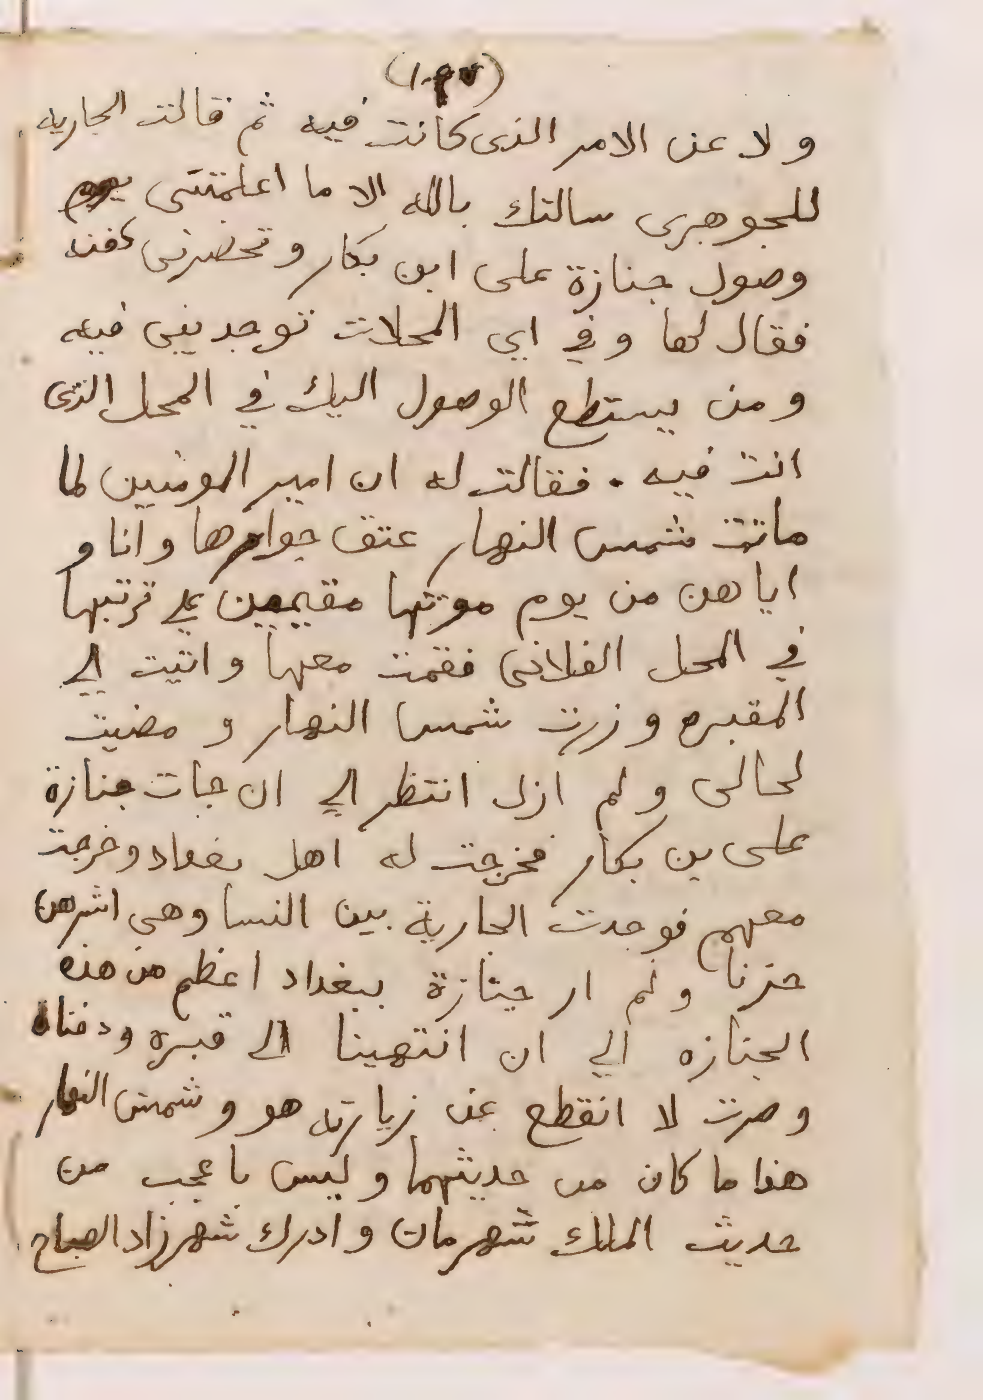 ولا عن الامر الذى كانت فيه ثم قالت الجاريه
للجوهرى سالتك بالله الا ما اعلمتنى يوم
وصول جنازة على ابن بكار وتحضرنى دفنه
فقال لها وفي اي المحلات توجدينى فيه
ومن يستطع الوصول اليك في المحل الذى
انت فيه . فقالت له ان امير المومنين لما
ماتت شمس النهار عتق جوارها وانا و
اياهن من يوم موتها مقيمين على تربتها
في المحل الفلانى فقمت معها واتيت الي
المقبره وزرت شمس النهار و مضيت
لحالى ولم ازل انتظر الي ان جات جنازة
على بن بكار فخرجت له اهل بغداد وخرجت
معهم فوجدت الجارية بين النسا وهى اشرهن
حزنا ولم ار جنازة ببغداد اعظم من هذه
الجنازه الي ان انتهينا الي قبره ودفناه
وصرت لا انقطع عن زيارته هو وشمس النهار
هذا ما كان من حديثهما وليس باعجب من
حديث الملك شهرمان وادرك شهرزاد الصباح